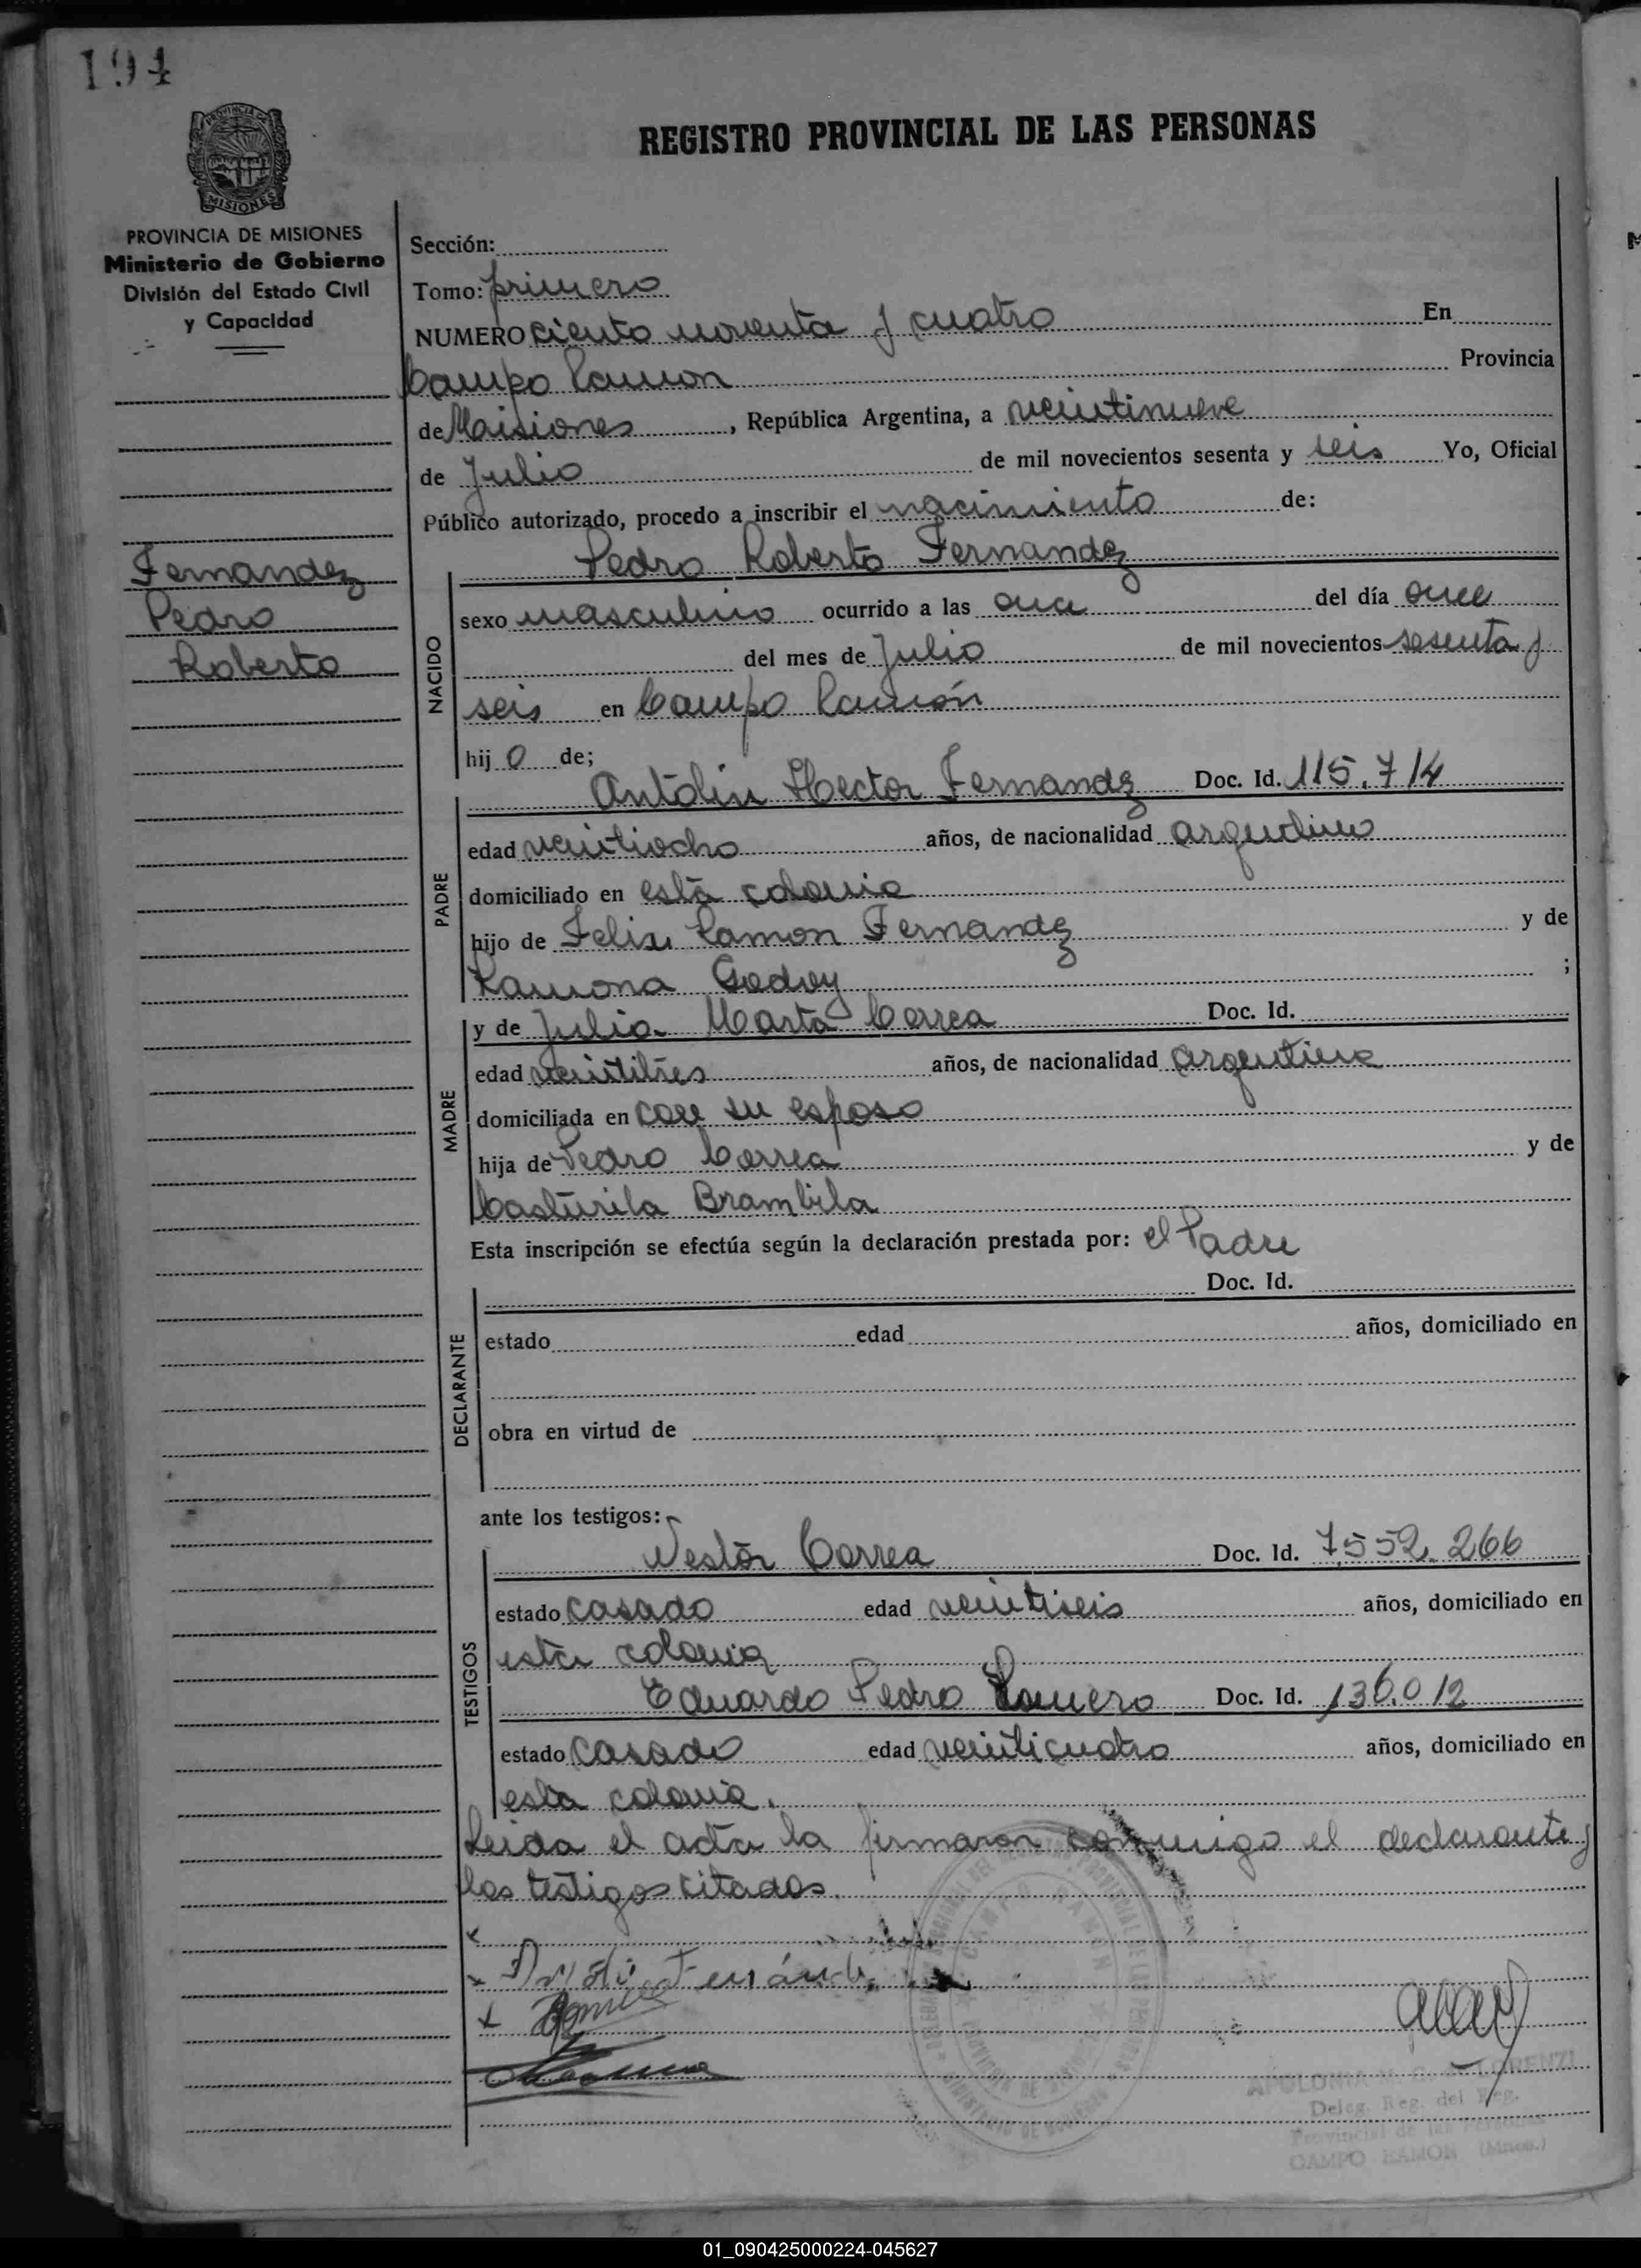 194
PROVINCIA DE
MISIONES
REGISTRO PROVINCIAL DE LAS PERSONAS
PROVINCIA DE MISIONES
Ministerio de Gobierno
División del Estado Civil
y Capacidad
Fernandez
Pedro
Roberto
Sección:
Tomo: primero
NUMERO ciento noventa y cuatro En
Campo Ramon Provincia
de Misiones, República Argentina, a veintinueve
de Julio de mil novecientos sesenta y seis Yo, Oficial
Público autorizado, procedo a inscribir el nacimiento de:
NACIDO
Pedro Roberto Fernandez
sexo masculino ocurrido a las once del día once
del mes de Julio de mil novecientos sesenta y
seis en Campo Ramón
hijo de;
PADRE
Antolin Hector Fernandez Doc. Id. 115.714
edad veintiocho años, de nacionalidad argentino
domiciliado en esta colonia
hijo de Felix Ramon Fernandez y de
Ramona Godoy ;
MADRE
y de Julia Marta Correa Doc. Id.
edad veintitres años, de nacionalidad argentina
domiciliada en con su esposo
hija de Pedro Correa y de
Casturila Brambila
Esta inscripción se efectúa según la declaración prestada por: el Padre
DECLARANTE
Doc. Id.
estado edad años, domiciliado en
obra en virtud de
ante los testigos:
TESTIGOS
Nestor Correa Doc. Id. 7.552.266
estado casado edad veintiseis años, domiciliado en
esta colonia
Eduardo Pedro Romero Doc. Id. 136.012
estado casado edad veinticuatro años, domiciliado en
esta colonia.
Leida el acta la firmaron conmigo el declarante y
los testigos citados.
CAMPO RAMON
MINISTERIO DE GOBIERNO
APOLONIA LORENZI
Deleg. Reg. del Reg.
Provincial de las Personas
CAMPO RAMON (Mnes.)
01_090425000224-045627